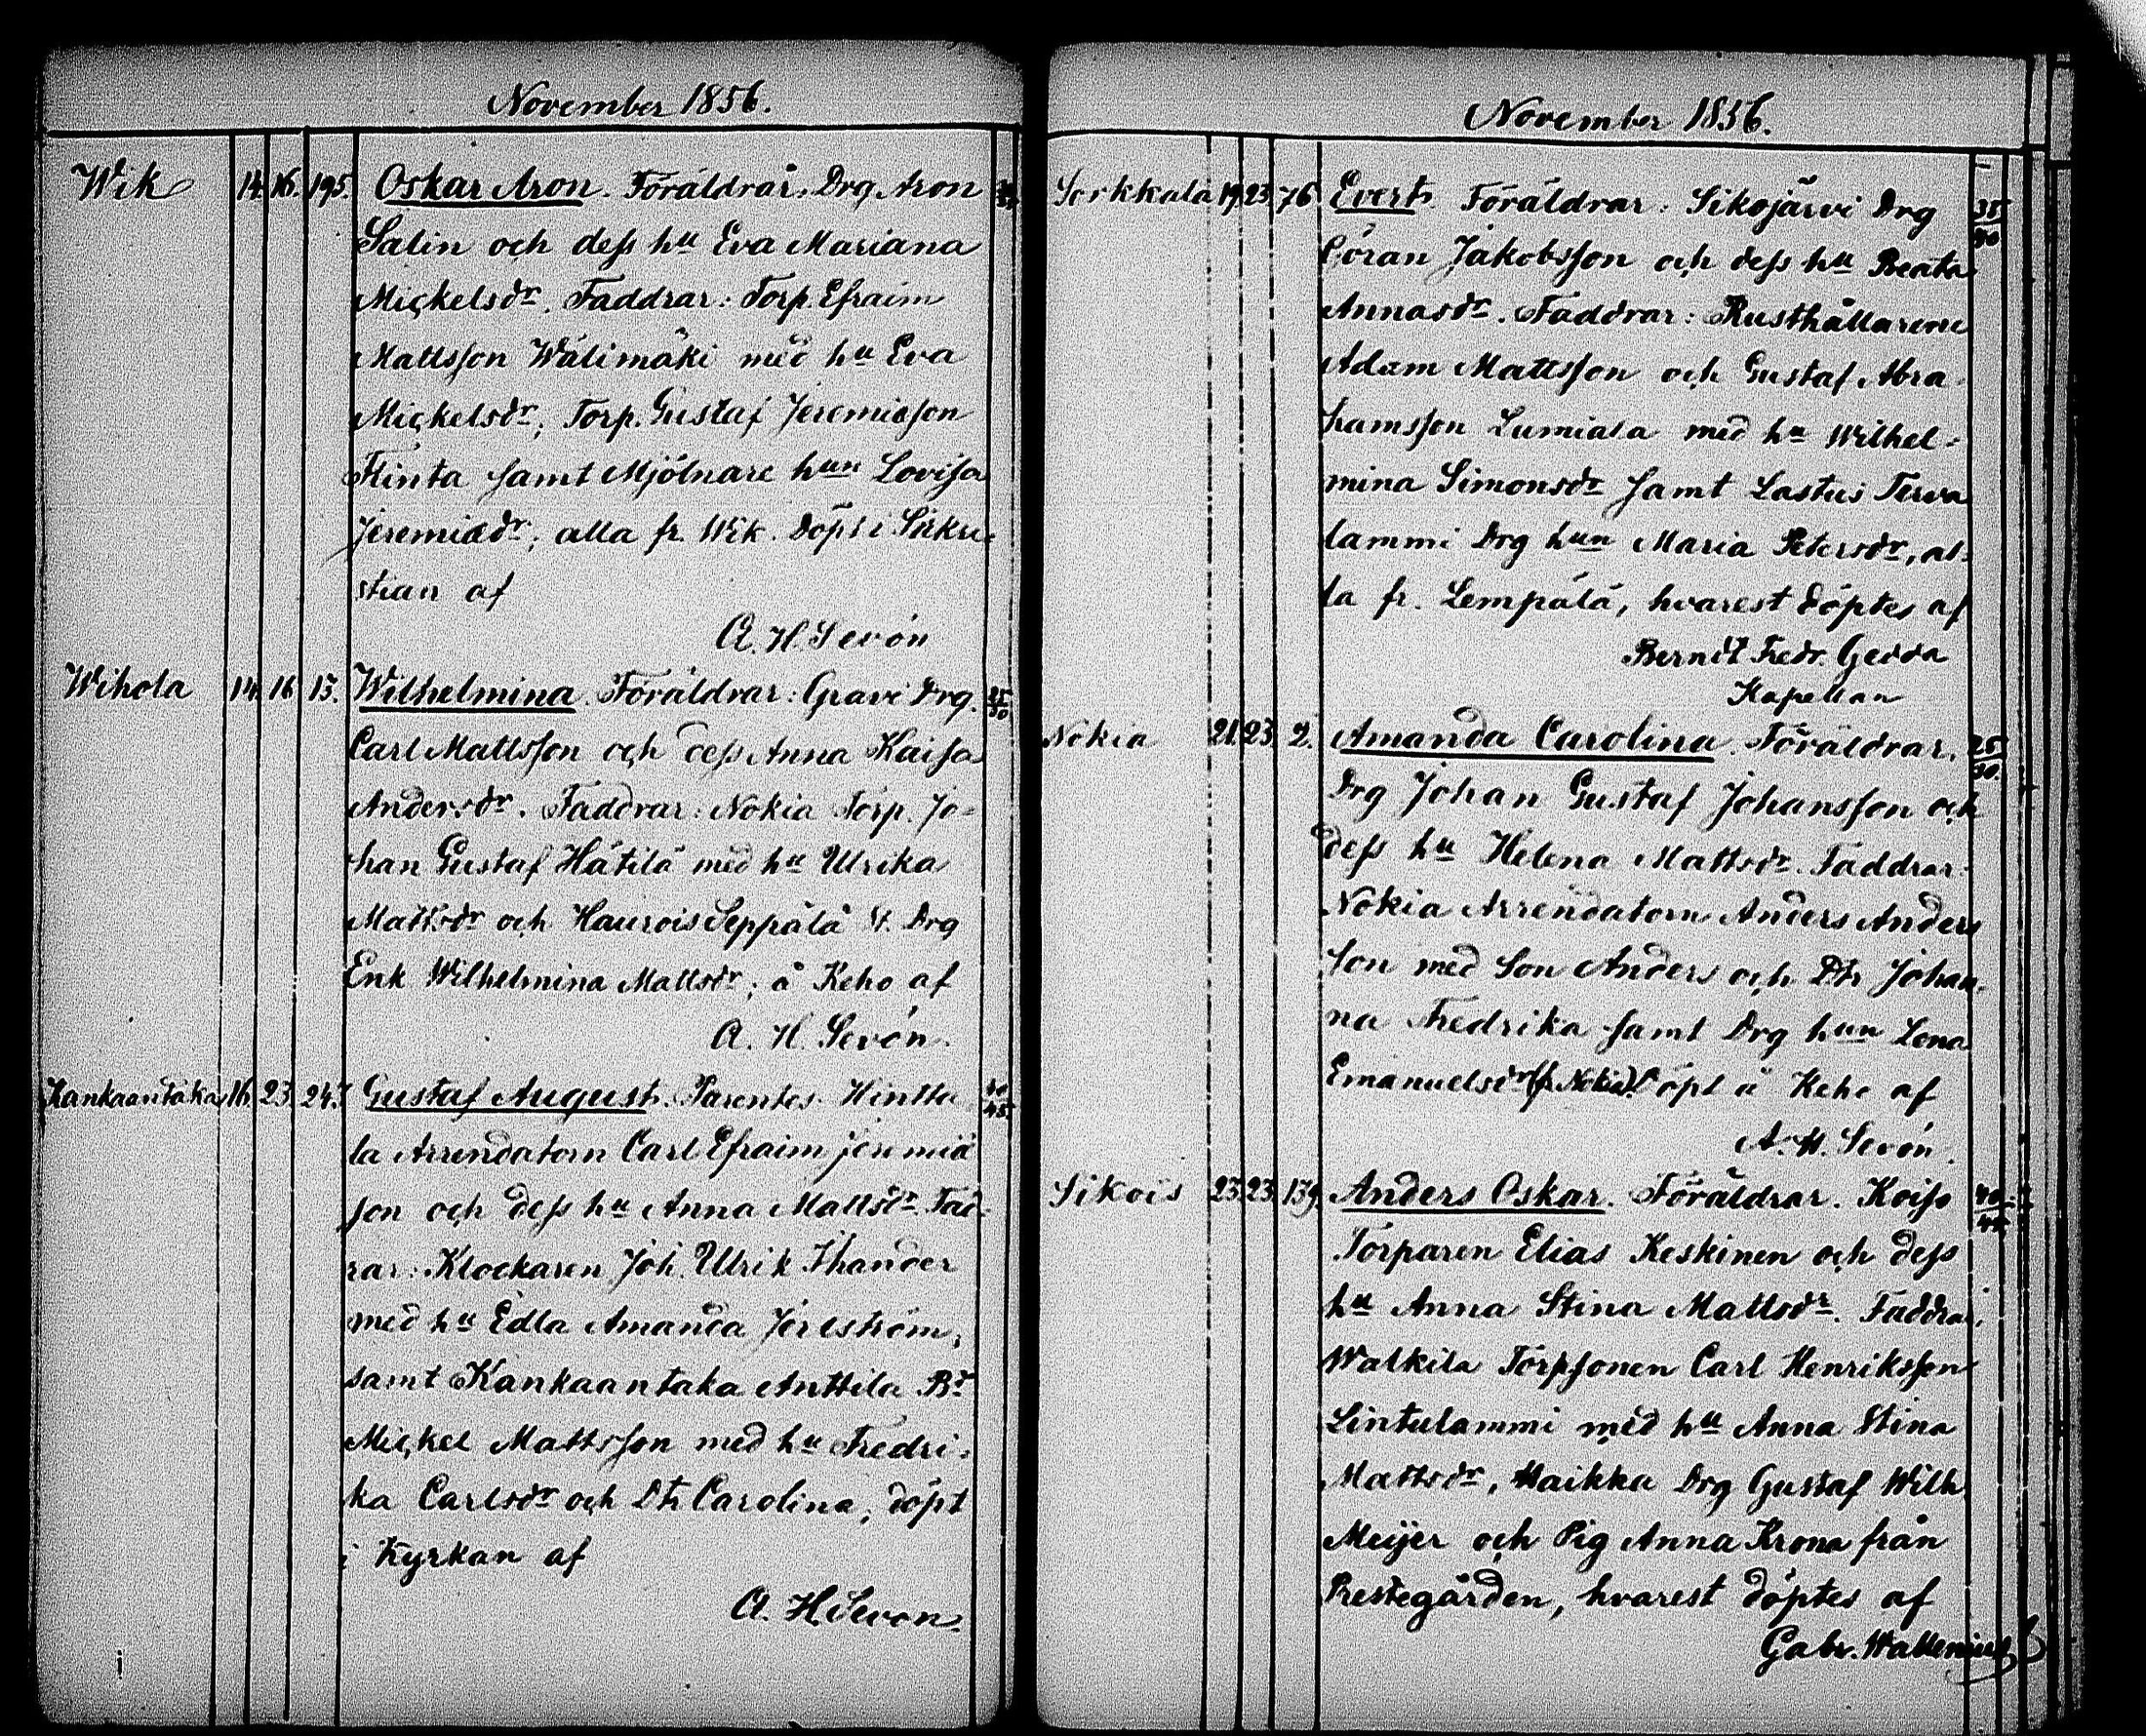 November 1856.
Wik 14. 16. 195. Oskar Aron. Föräldrar: Drg Aron
Salin och dess hu Eva Mariana
Mickelsdr. Faddrar: Torp. Efraim
Mattsson Wälimäki med hu Eva
Mickelsdr, Torp. Gustaf Jeremiæson
Hinta samt Mjölnare hun Lovisa
Jeremiædr; alla fr. Wik. Döpt i Sakri-
stian af
A. H. Sevón
Wihola 14. 16 15. Wilhelmina. Föräldrar: Gravi Drg. 25/30
Carl Mattsson och dess Anna Kaisa
Andersdr. Faddrar: Nokia Torp. Jo-
han Gustaf Hätilä med hu Ulrika
Mattsdr och Haurois Seppälä St. Drg
Enk Wilhelmina Mattsdr; å Keho af
A. H. Sevón.
Kankaantaka 16. 23. 24. Gustaf August. Parentes Hintta 40/45
la Arrendatorn Carl Efraim Jeremiæ
son och dess hu Anna Mattsdr. Fad-
rar: Klockaren Joh. Ulrik Thander
med hu Edla Amanda
samt Kankaantaka Anttila Bd
Mickel Mattsson med hu Fredri-
ka Carlsdr och Dtr Carolina; döpt
i Kyrkan af
A. H. Sevon.
November 1856.
Sorkkala 19. 23. 76 Evert. Föräldrar: Sikojärvi Drg 35/40
Göran Jakobsson och dess hu Beata
Annasdr. Faddrar: Rusthållarene
Adam Mattsson och Gustaf Abra-
hamsson Lumiala med hu Wilhel-
mina Simonsdr samt Lastus Terva
lammi Drg hun Maria Petersdr, al-
la fr. Lempälä, hvarest döptes af
Berndt Fredr. Gedda
Kapellan
Nokia 21. 23. 2. Amanda Carolina. Föräldrar. 25/30.
Drg Johan Gustaf Johansson och
dess hu Helena Mattsdr. Faddrar:
Nokia Arrendatorn Anders Anders
son med Son Anders och Dtr Johan-
na Fredrika samt Drg hun Lena
Emanuelsdr (fr. Nokia). Döpt å Keho af
A. H. Sevón.
Sikois 23. 23. 139. Anders Oskar. Föräldrar. Koiso
Torparen Elias Keskinen och dess
hu Anna Stina Mattsdr. Faddrar,
Walkila Torpsonen Carl Henriksson
Lintulammi med hu Anna Stina
Mattsdr, Haikka Drg Gustaf Wilh.
Meijer och Pig Anna Krona från
Prestegården, hvarest döptes af
Gabr. Wallenius